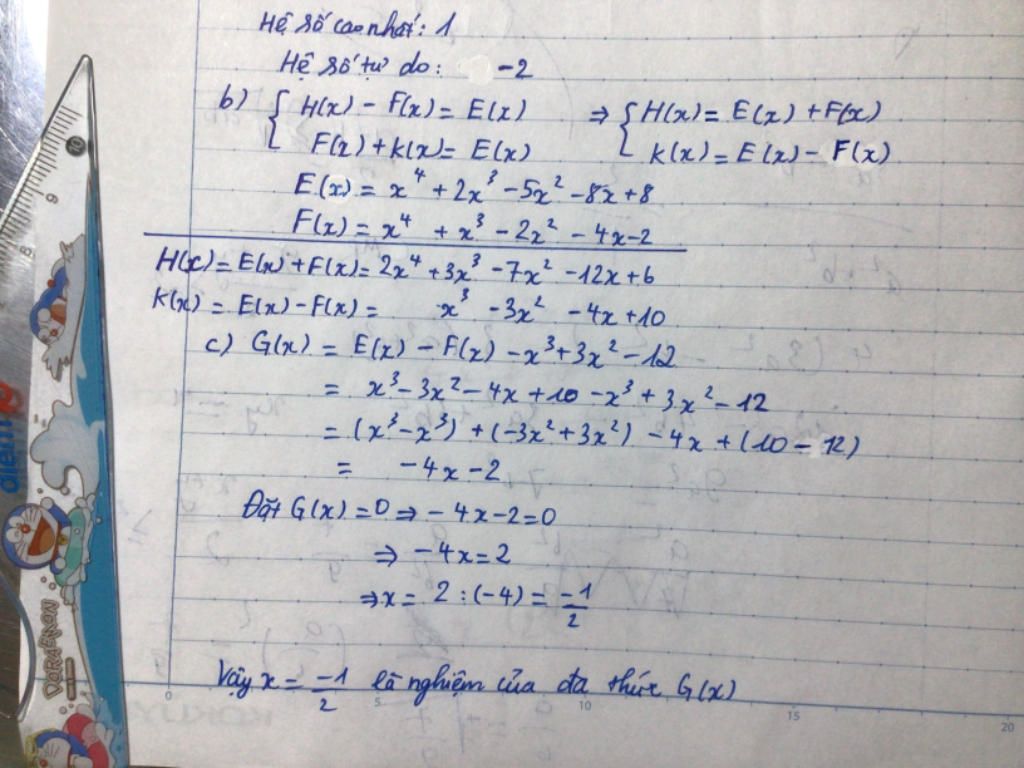 Hệ số cao nhất: 1
Hệ số tự do: -2
b) { H(x) - F(x) = E(x) ⇒ { H(x) = E(x) + F(x)
F(x) + K(x) = E(x) K(x) = E(x) - F(x)
E(x) = x⁴ + 2x³ - 5x² - 8x + 8
F(x) = x⁴ + x³ - 2x² - 4x - 2
H(x) = E(x) + F(x) = 2x⁴ + 3x³ - 7x² - 12x + 6
K(x) = E(x) - F(x) = x³ - 3x² - 4x + 10
c) G(x) = E(x) - F(x) - x³ + 3x² - 12
= x³ - 3x² - 4x + 10 - x³ + 3x² - 12
= (x³ - x³) + (-3x² + 3x²) - 4x + (10 - 12)
= -4x - 2
Đặt G(x) = 0 ⇒ -4x - 2 = 0
⇒ -4x = 2
⇒ x = 2 : (-4) = -1/2
Vậy x = -1/2 là nghiệm của đa thức G(x)
DORAEMON
8 9 10
0 5 10 15 20